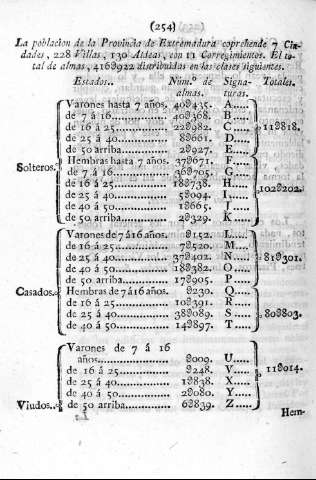 (254)
La poblacion de la Provincia de Extremadura coprehende 7 Ciu-
dades, 228 Villas, 130 Aldeas, con 11 Corregimientos. El to-
tal de almas, 416ꝺ922 distribuidas en las clases siguientes.
Estados.. Núm.º de almas. Signaturas. Totales.
Solteros.
Varones hasta 7 años. 40ꝺ435. A
de 7 á 16 40ꝺ368. B
de 16 á 25 22ꝺ982. C
de 25 á 40 8ꝺ661. D
de 50 arriba 2ꝺ927. E
Hembras hasta 7 años. 37ꝺ671. F
de 7 á 16 36ꝺ705. G
de 16 á 25 18ꝺ738. H
de 25 á 40 5ꝺ094. I
de 40 á 50 1ꝺ665. J
de 50 arriba 2ꝺ329. K
102ꝺ202.
Casados.
Varones de 7 á 16 años. ꝺ152. L
de 16 á 25 7ꝺ520. M
de 25 á 40 37ꝺ402. N
de 40 á 50 18ꝺ382. O
de 50 arriba 17ꝺ905. P
81ꝺ301.
Hembras de 7 á 16 años. ꝺ230. Q
de 16 á 25 10ꝺ391. R
de 25 á 40 38ꝺ089. S
de 40 á 50 14ꝺ897. T
80ꝺ803.
Viudos..
Varones de 7 á 16
años ꝺ009. U
de 16 á 25 ꝺ248. V
de 25 á 40 1ꝺ838. X
de 40 á 50 2ꝺ080. Y
de 50 arriba 6ꝺ839. Z
11ꝺ014.
Hem-